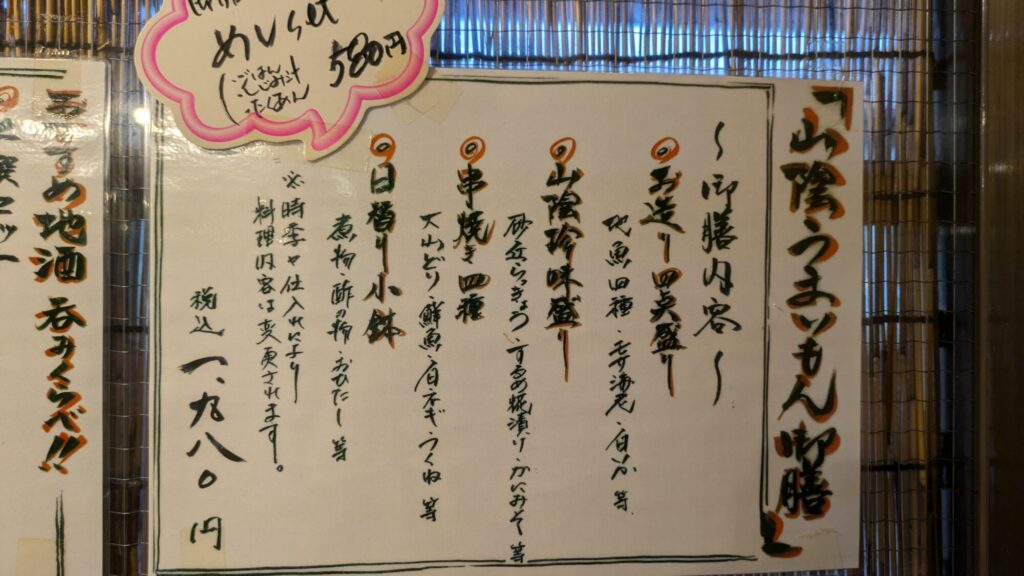 「山陰うまいもん御膳」
〜御膳内容〜
◎お造り四点盛り
地魚四種・モサ海老・白いか 等
◎山陰珍味盛り
砂丘らっきょう・するめ糀漬け・かいみそ 等
◎串焼き四種
大山どり・鮮魚・白ネギ・つくね 等
◎日替り小鉢
煮物・酢の物・おひたし 等
※時季や仕入れにより
料理内容は変更されます。
税込 一、九八〇円
めしset
580円
ごはん
・たくあん
おすすめ地酒 呑みくらべ!!